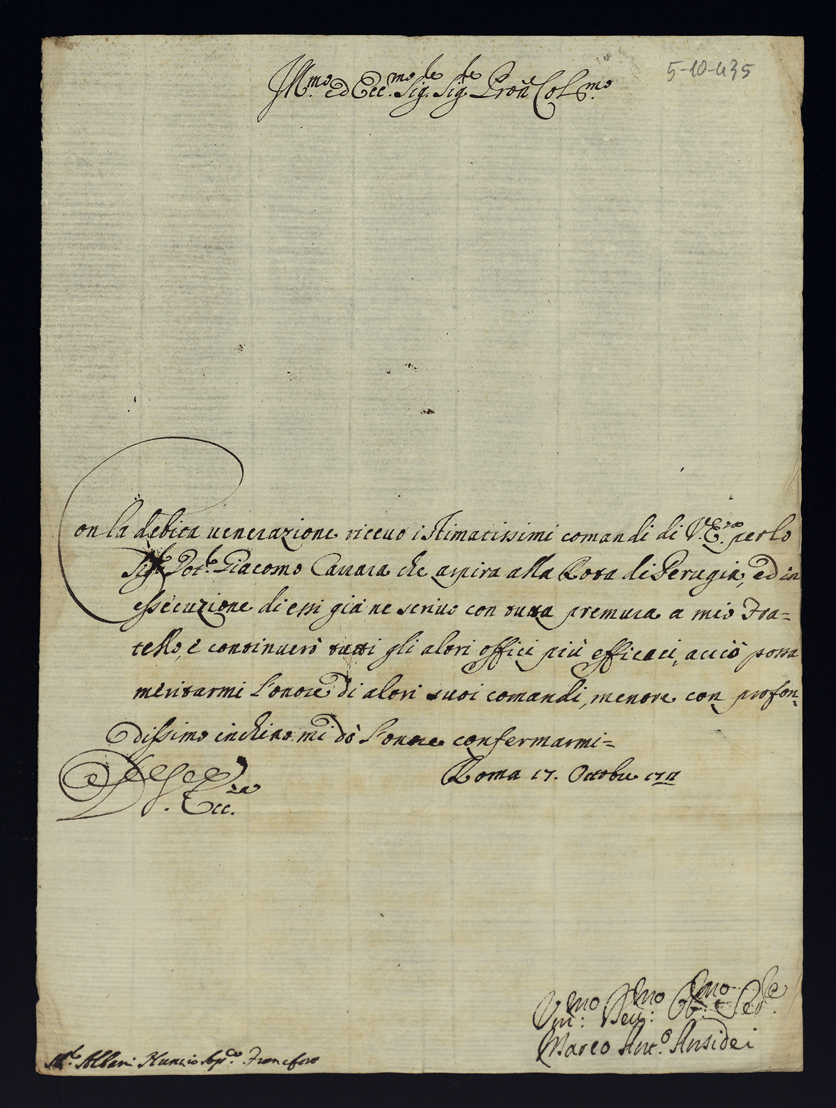 5-10-435
Ill.mo ed Ecc.mo Sig.re Sig.re Pron Col.mo
Con la debita venerazione ricevo i stimatissimi comandi di V. E.za per lo
Sig.r Dot.r Giacomo Cavara che aspira alla Rota di Perugia, ed in
essecuzione di essi già ne scrivo con tutta premura a mio Fra=
tello, e continuerò tutti gli altri offici più efficaci, acciò possa
meritarmi l'onore di altri suoi comandi, mentre con profon=
dissimo inchino mi dò l'onore confermarmi=
Roma 17. Ottobre 1711
D V. Ecc.za
Um.mo Dev.mo Ob.mo Ser.re
Marco Ant.o Ansidei
M.r Albani Nunzio Ap.co Francfort